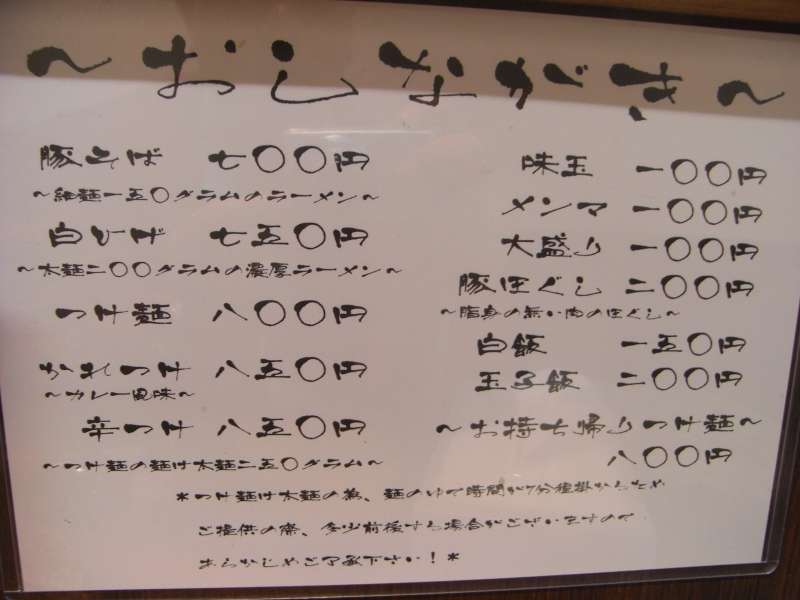 ～おしながき～
豚そば 七〇〇円
～細麺一五〇グラムのラーメン～
白ひげ 七五〇円
～太麺二〇〇グラムの濃厚ラーメン～
つけ麺 八〇〇円
かれつけ 八五〇円
～カレー風味～
辛つけ 八五〇円
～つけ麺の麺は太麺二五〇グラム～
味玉 一〇〇円
メンマ 一〇〇円
大盛り 一〇〇円
豚ほぐし 二〇〇円
～脂身の無い肉のほぐし～
白飯 一五〇円
玉子飯 二〇〇円
～お持ち帰りつけ麺～
八〇〇円
*つけ麺は太麺の為、麺のゆで時間が7分程掛かるため
ご提供の際、多少前後する場合がございますので
あらかじめご了承下さい！*